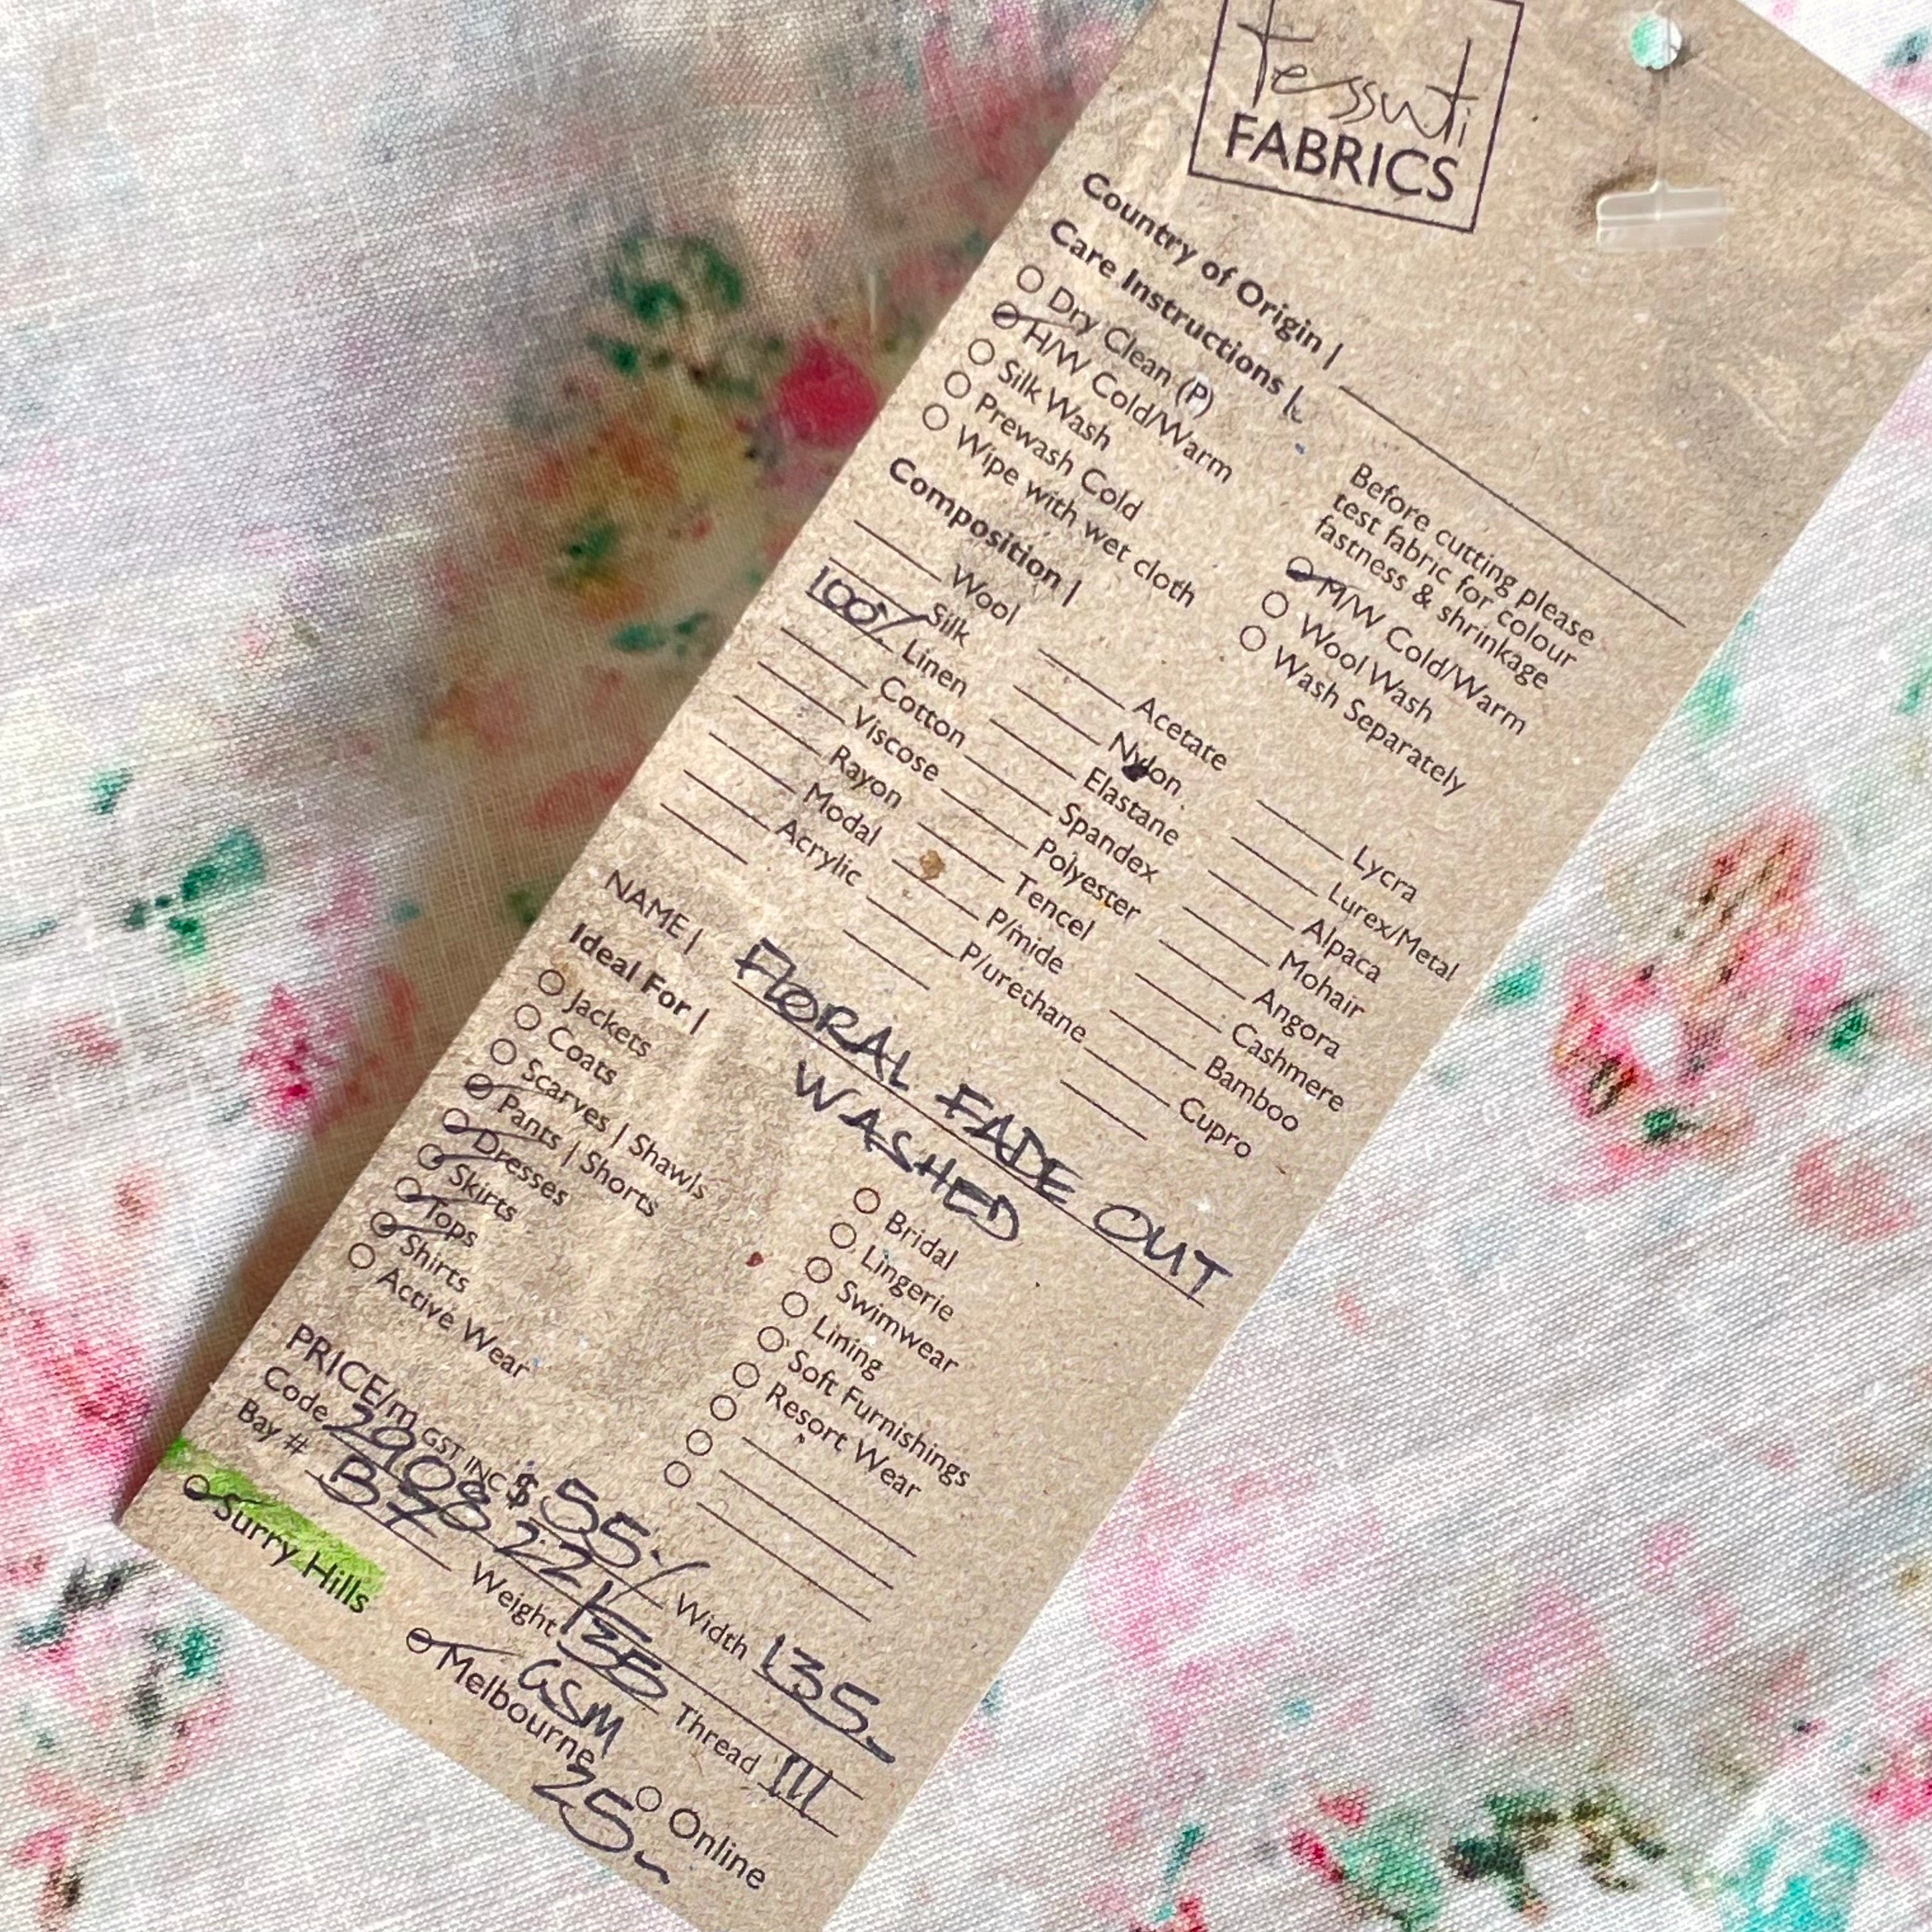 tessuti
FABRICS
Country of Origin |
Care Instructions |
Before cutting please
test fabric for colour
fastness & shrinkage
Dry Clean (P)
H/W Cold/Warm
Silk Wash
Prewash Cold
Wipe with wet cloth
M/W Cold/Warm
Wool Wash
Wash Separately
Composition |
Wool
Silk
100% Linen
Cotton
Viscose
Rayon
Modal
Acrylic
Acetate
Nylon
Elastane
Spandex
Polyester
Tencel
P/mide
P/urethane
Lycra
Lurex/Metal
Alpaca
Mohair
Angora
Cashmere
Bamboo
Cupro
NAME | FLORAL FADE OUT
WASHED
Ideal For |
Jackets
Coats
Scarves | Shawls
Pants | Shorts
Dresses
Skirts
Tops
Shirts
Active Wear
Bridal
Lingerie
Swimwear
Lining
Soft Furnishings
Resort Wear
PRICE/m GST INC $ 55 Width 135
Code Thread III
Bay # B7 Weight 155
GSM
Surry Hills Melbourne Online
25